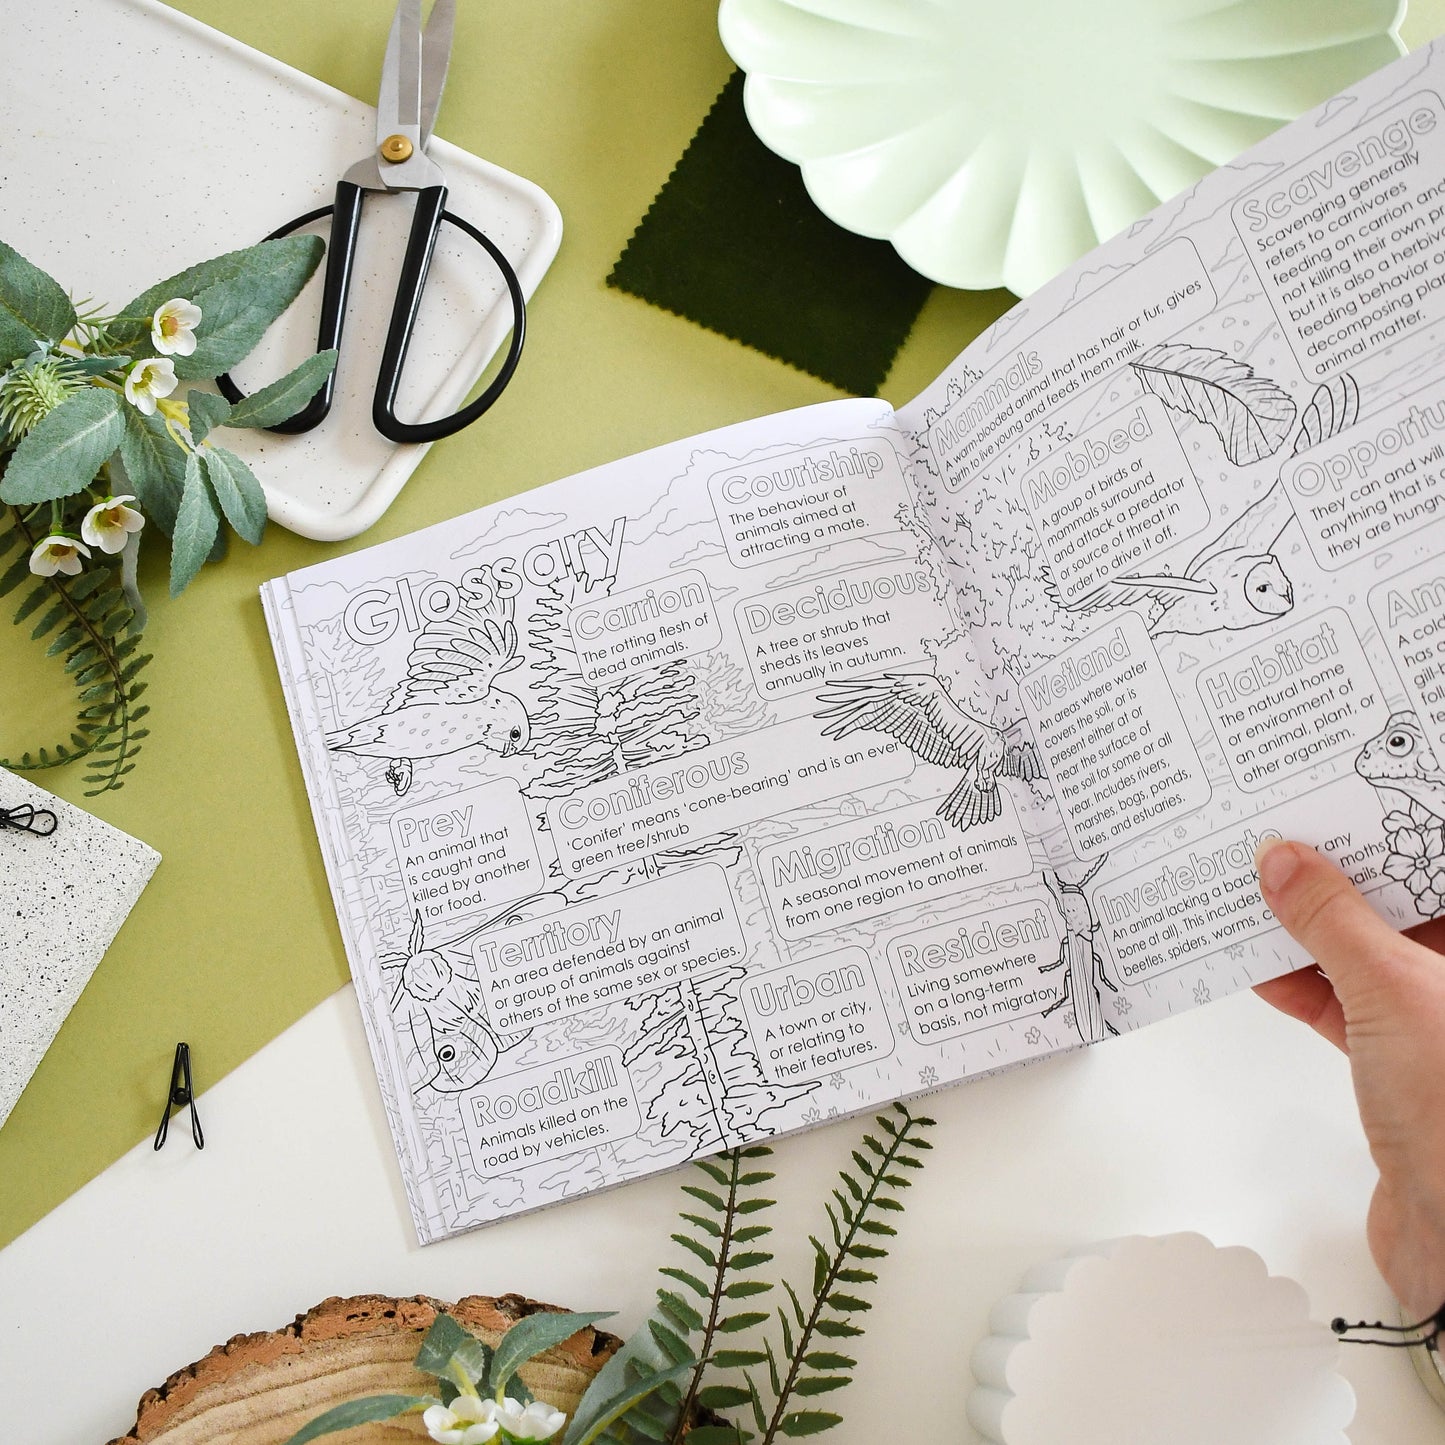 Glossary
Courtship
The behaviour of
animals aimed at
attracting a mate.
Carrion
The rotting flesh of
dead animals.
Deciduous
A tree or shrub that
sheds its leaves
annually in autumn.
Prey
An animal that
is caught and
killed by another
for food.
Coniferous
'Conifer' means 'cone-bearing' and is an ever
green tree/shrub
Migration
A seasonal movement of animals
from one region to another.
Territory
An area defended by an animal
or group of animals against
others of the same sex or species.
Urban
A town or city,
or relating to
their features.
Resident
Living somewhere
on a long-term
basis, not migratory.
Roadkill
Animals killed on the
road by vehicles.
Mammals
A warm-blooded animal that has hair or fur, gives
birth to live young and feeds them milk.
Scavenge
Scavenging generally
refers to carnivores
feeding on carrion and
not killing their own
but it is also a
feeding behavior
decomposing
animal matter.
Mobbed
A group of birds or
mammals surround
and attack a predator
or source of threat in
order to drive it off.
They can and will
anything that is
they are
Wetland
An areas where water
covers the soil, or is
present either at or
near the surface of
the soil for some or all
year. Includes rivers,
marshes, bogs, ponds,
lakes, and estuaries.
Habitat
The natural home
or environment of
an animal, plant, or
other organism.
A
has a
Invertebrate
An animal lacking a back any
bone at all). This includes moths,
beetles, spiders, worms,